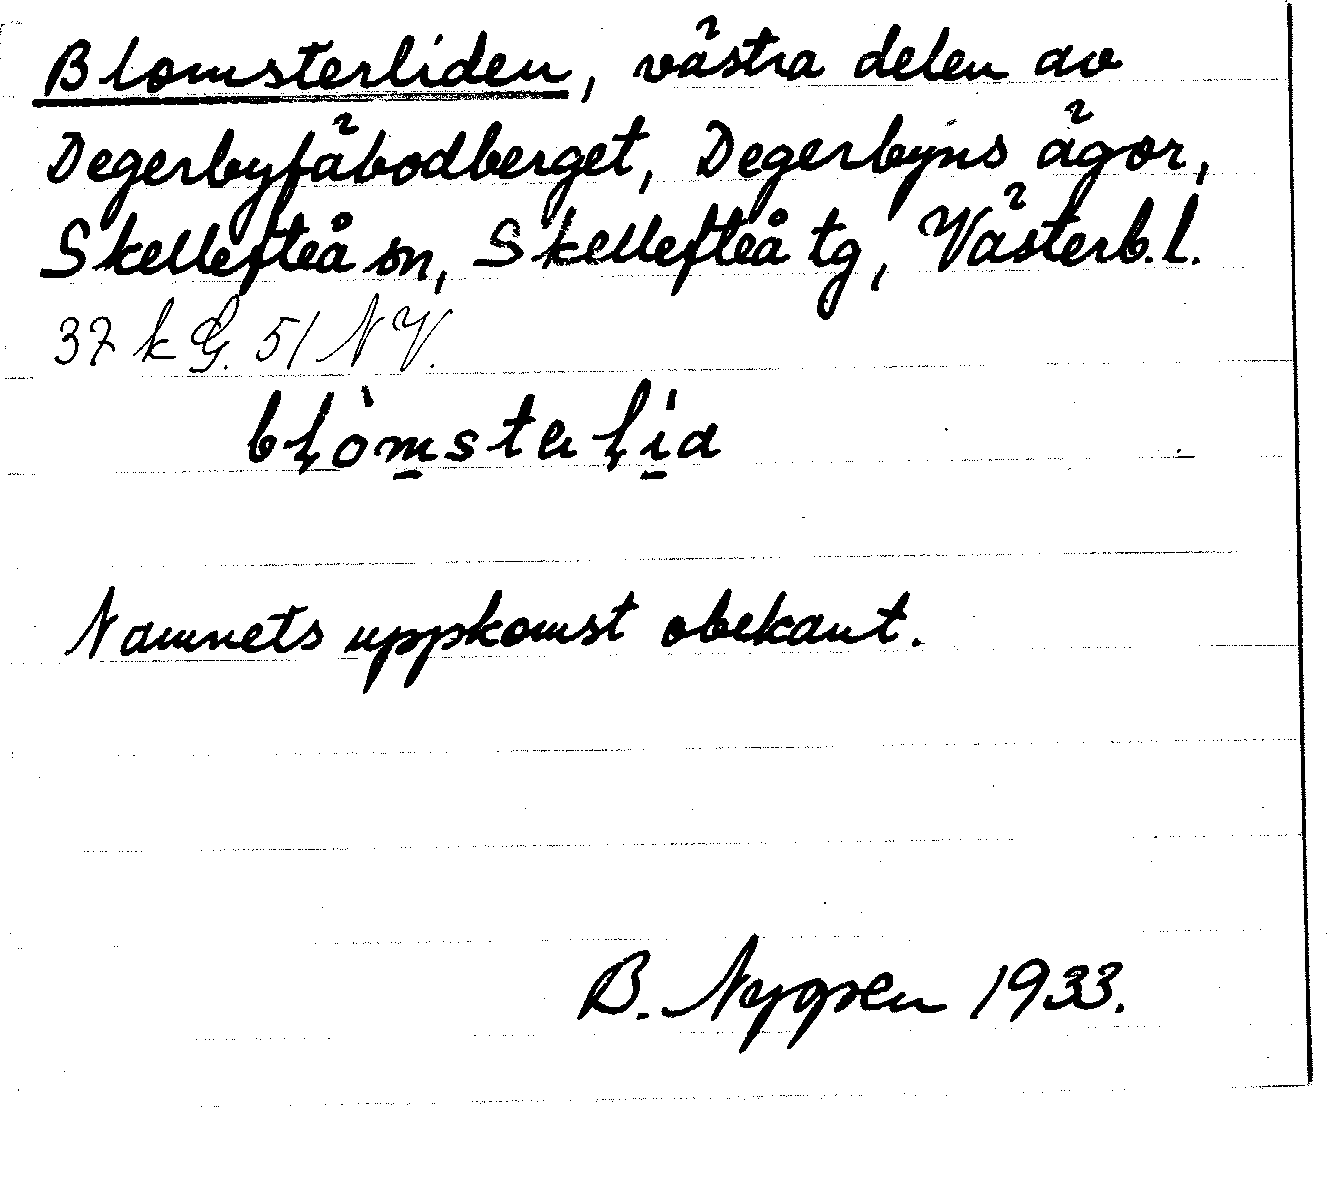 Blomsterliden, västra delen av
Degerbyfäbodberget, Degerbyns ägor,
Skellefteå sn, Skellefteå tg, Västerb. l.
37 k G. 51 NV.
Namnets uppkomst obekant.
B. Nygren 1933.